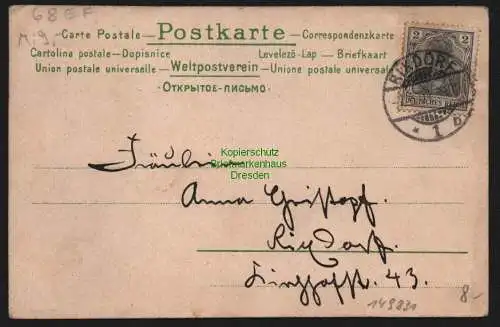 68EF
M-9.
Carte Postale — Postkarte — Correspondenzkarte
Cartolina postale — Dopisnice Levelező-Lap — Briefkaart
Union postale universelle — Weltpostverein — Unione postale universale
ОТКРЫТОЕ-ПИСЬМО
2 2
RIXDORF
* 1 b.
Kopierschutz
Briefmarkenhaus
Dresden
Fräulein
Anna Gristopf.
Rixdorf.
43.
149831
8-